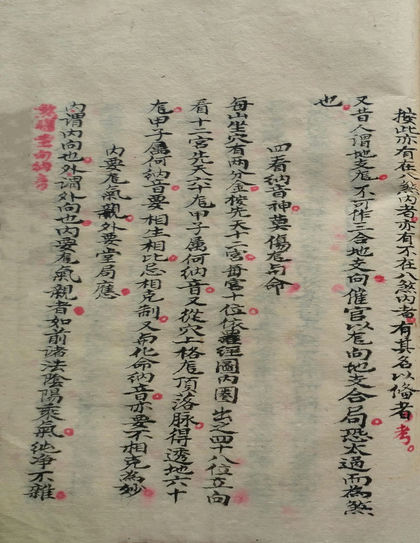 按此亦有在八煞內者亦有不在煞內者有其名以備者考
又昔人謂地支龙不可作三合地支向催官以龙向地支合局恐太過而為煞
也
四看納音神莫傷龙与命
每山坐穴有兩分金按先天十二宮每宮十位依羅經圖內圈出之四十八位立向
看十二宮先天六十龙甲子屬何納音又從穴上格龙頂落脉得透地六十
龙甲子屬何納音要相生相比忌相克制又而化命納音亦要不相克為妙
內要龙氣親外要堂局應
內謂內向也外謂外向也內要龙氣親者如前諸法陰陽乘氣純净不雜